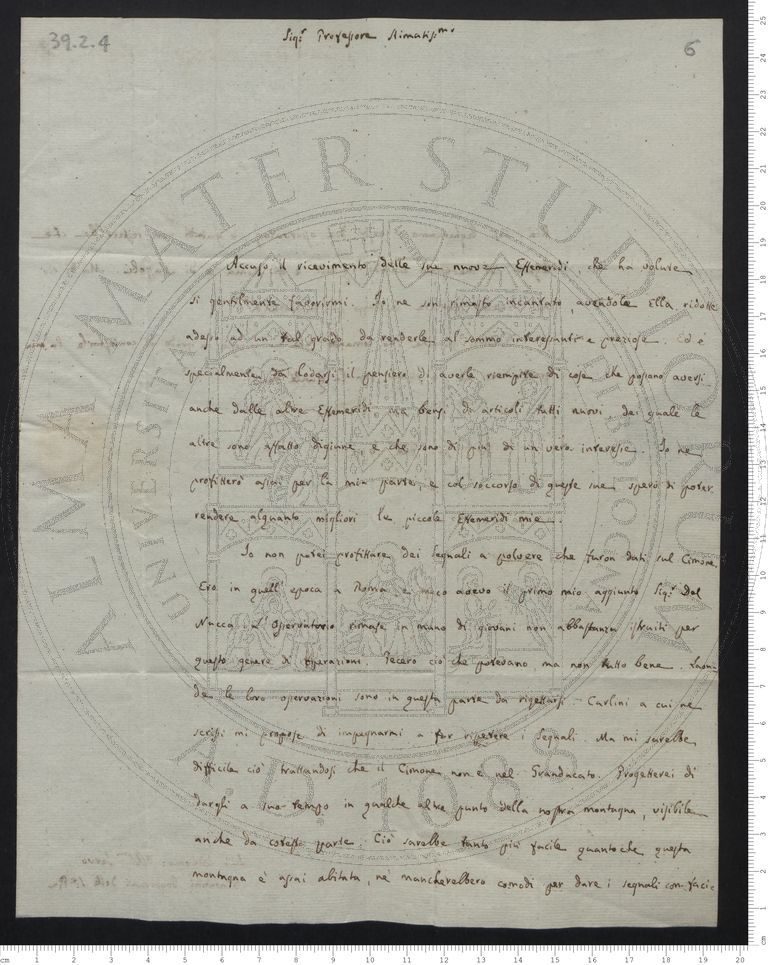 39.2.4
6
Sig.r Professore Stimatiss.mo
Accuso il ricevimento delle sue nuove Effemeridi, che ha volute
si gentilmente favorirmi. Io ne son rimasto incantato, avendole Ella ridotte
adesso ad un tal grado da renderle al sommo interessanti e preziose. Ed è
specialmente da lodarsi il pensiero di averle riempite di cose che possano aversi
anche dalle altre Effemeridi, ma bensì di articoli tutti nuovi, dei quale le
altre sono affatto digiune, e che sono di più di un vero interesse. Io ne
profitterò assai per la mia parte, e col soccorso di queste sue spero di poter
rendere alquanto migliori le piccole Effemeridi mie.
Io non potei profittare dei segnali a polvere che furon dati sul Cimone.
Ero in quell'epoca a Roma e meco avevo il primo mio aggiunto Sig.r Del
Nacca. L'Osservatorio rimase in mano di giovani non abbastanza istruiti per
questo genere di operazioni. Fecero ciò che potevano, ma non tutto bene. Laon-
de le loro operazioni sono in questa parte da rigettarsi. Carlini a cui ne
scrissi mi propose di impegnarmi a far ripetere i segnali. Ma mi sarebbe
difficile ciò trattandosi che il Cimone non è nel Granducato. Progetterei di
dargli a suo tempo in qualche altro punto della nostra montagna, visibile
anche da coteste parte. Ciò sarebbe tanto più facile quantoche questa
montagna è assai abitata, ne mancherebbero comodi per dare i segnali con faci-
ALMA MATER STUDIORUM
UNIVERSITA
A.D. 1088
cm 1 2 3 4 5 6 7 8 9 10 11 12 13 14 15 16 17 18 19 20